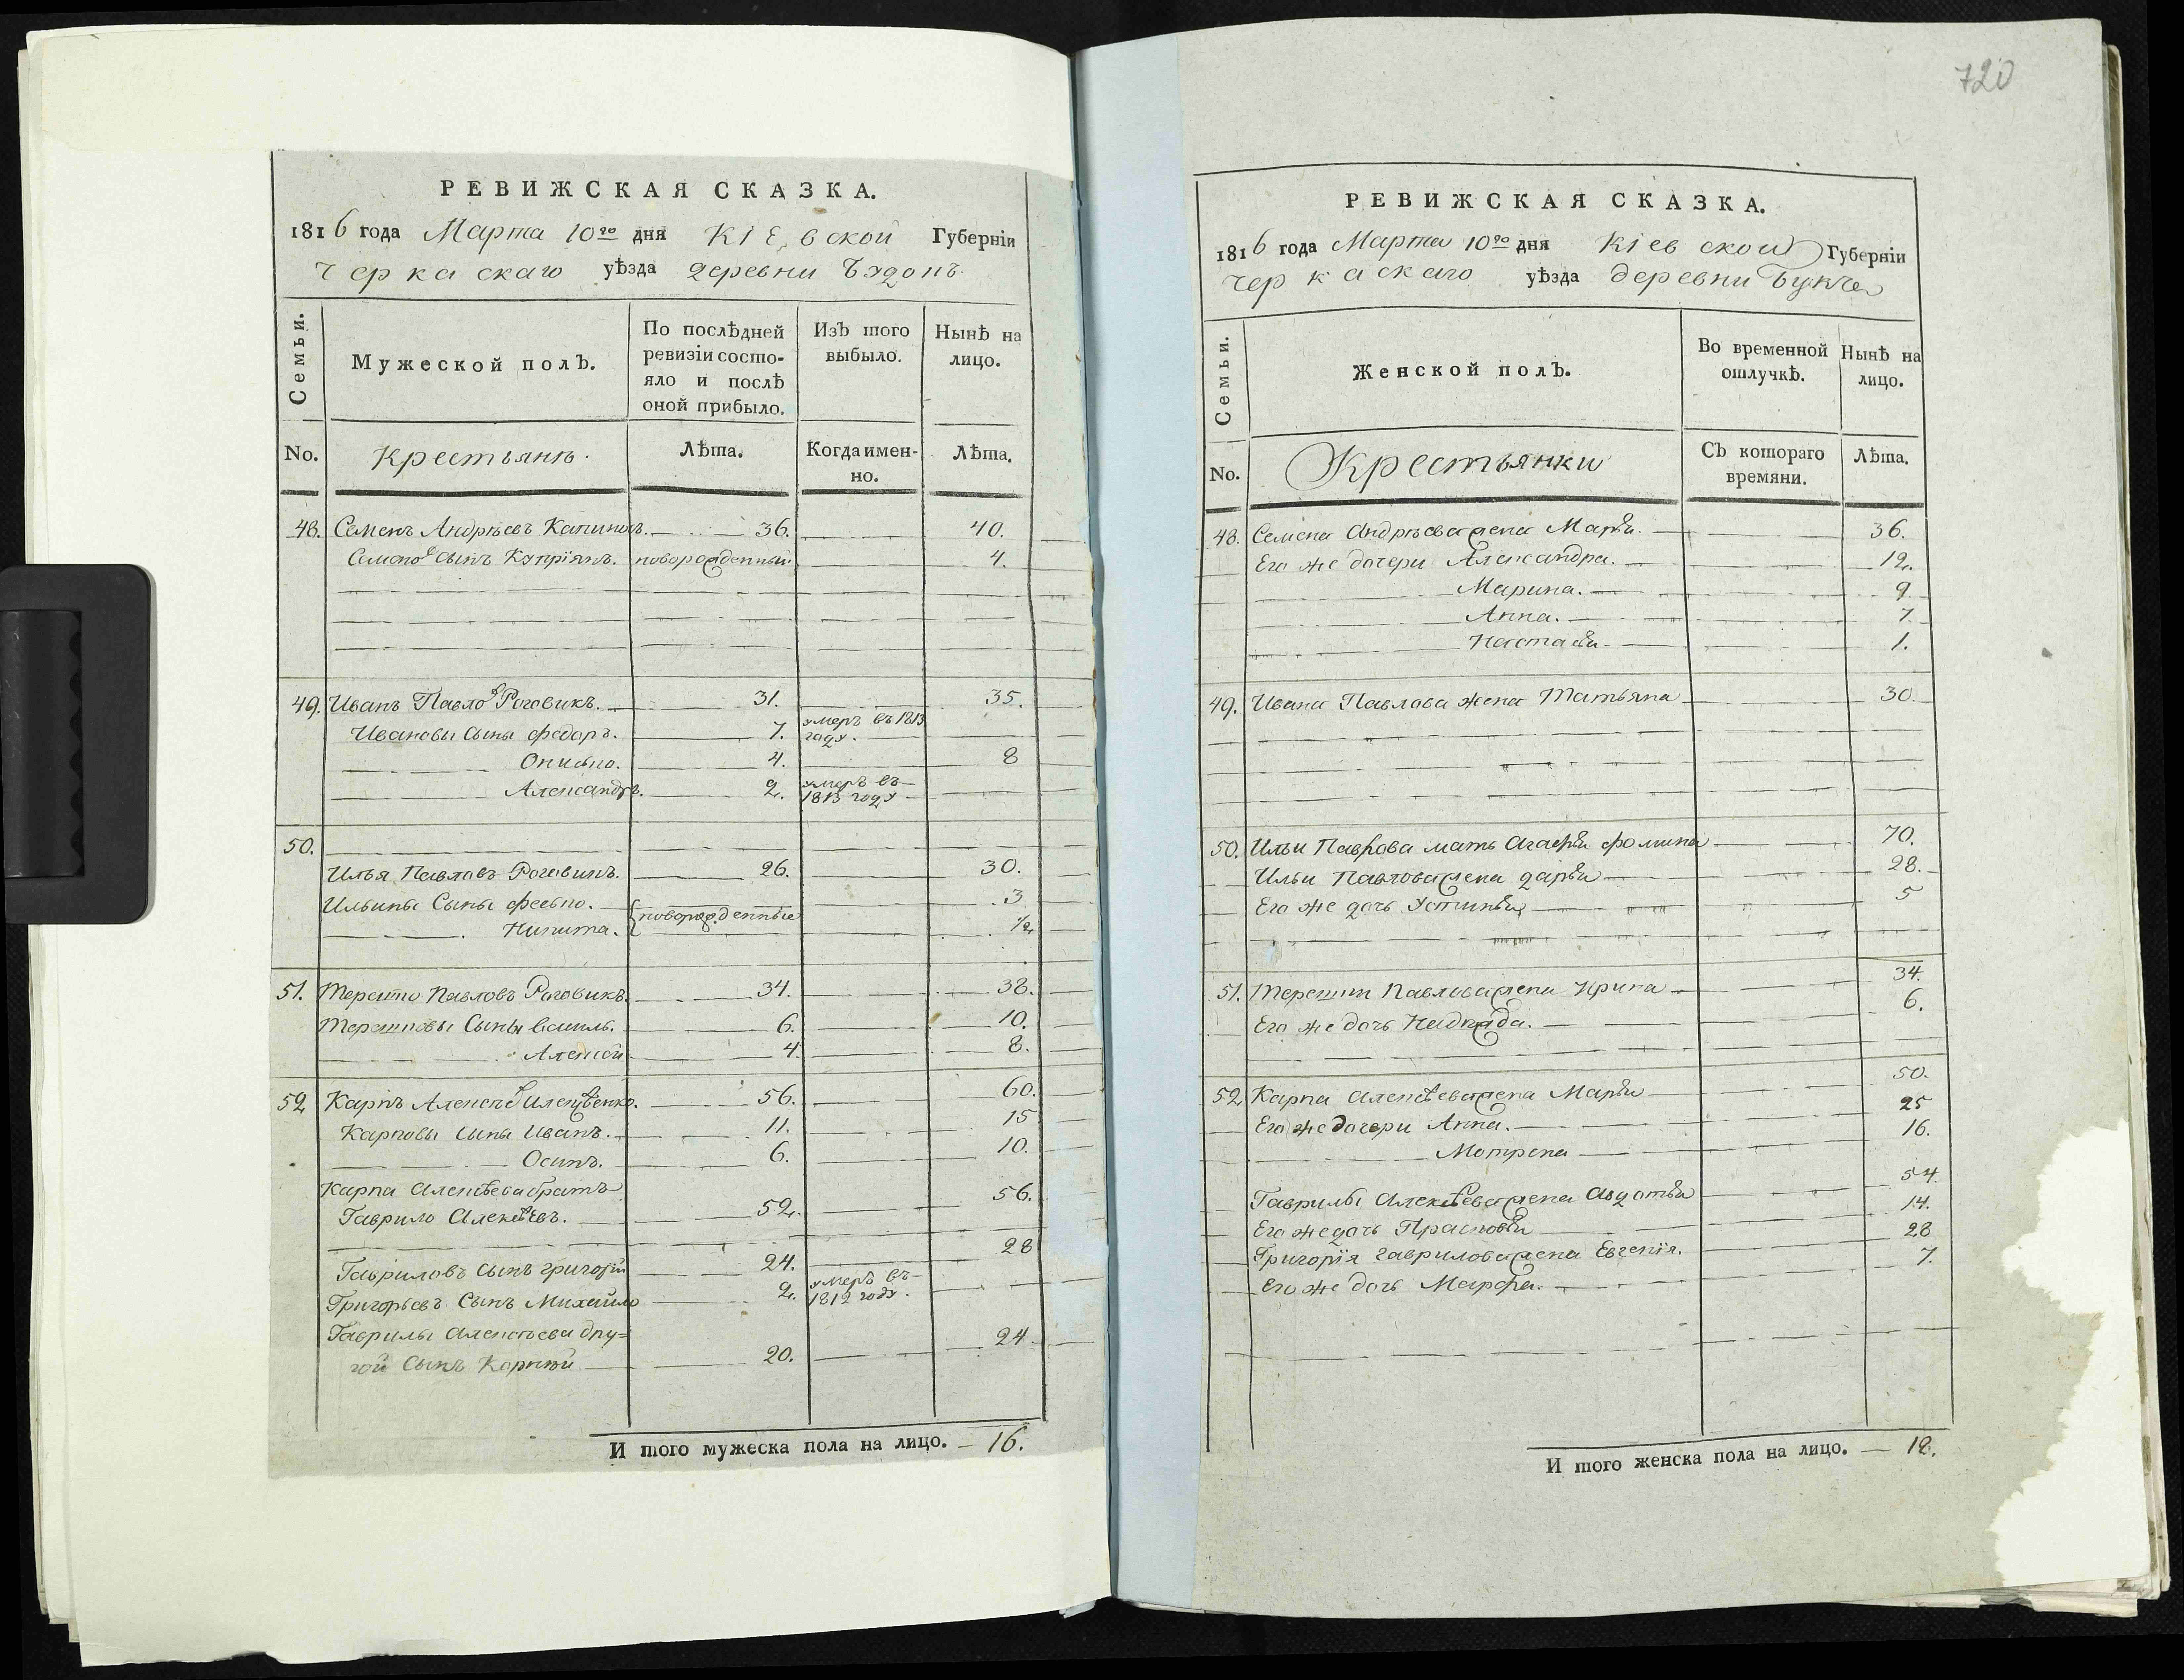 РЕВИЖСКАЯ СКАЗКА.
1816 года Марта 10го дня Кіевской Губерніи
Черкаскаго уѣзда деревни
Семьи.
Мужеской полъ.
По послѣдней ревизіи состо-
яло и послѣ
оной прибыло.
Изъ того выбыло.
Нынѣ на лицо.
No.
Крестьянѣ.
Лѣта.
Когда имен-
но.
Лѣта.
48. Семенъ Андрѣевъ 36. 40.
Семеновъ Сынъ Купріянъ. новорожденный 4.
49. Иванъ Павловъ Роговикъ. 31. 35.
Ивановы Сыны Федоръ. 7. умеръ въ 1813
году.
4. 8
Александръ. 2. умеръ въ
1813 году
50.
Илья Павловъ Роговикъ. 26. 30.
Ильины Сыны новорожденные 3
Никита. 1/2
51. Терешко Павловъ Роговикъ. 34. 38.
Терешковы Сыны Василь. 6. 10.
Алексей 4. 8.
52. Карпъ Алексѣевъ 56. 60.
Карповы Сыны Иванъ. 11. 15
Осипъ. 6. 10.
Карпа Алексѣева братъ
Гаврило Алексѣевъ. 52. 56.
Гавриловъ Сынъ Григорій 24. 28
Григорьевъ Сынъ Михайло 2. умеръ въ
1812 году.
Гаврилы Алексѣева дру=
гой Сынъ Корнѣй 20. 24.
И того мужеска пола на лицо. — 16.
720
РЕВИЖСКАЯ СКАЗКА.
1816 года Марта 10го дня Кіевской Губерніи
Черкаскаго уѣзда деревни
Семьи.
Женской полъ.
Во временной
отлучкѣ.
Нынѣ на
лицо.
No.
Крестьянки
Съ котораго
времяни.
Лѣта.
48. Семена Андрѣева жена Марья. 36.
Его же дочери Александра. 12.
Марина. 9
Анна. 7.
Настасья. 1.
49. Ивана Павлова жена Татьяна 30.
50. Ильи Павлова мать Агафья Фомина 70.
Ильи Павлова жена Дарья 28.
Его же дочь Устинья 5
51. Терешки Павлова жена Ирина 34.
Его же дочь 6.
52. Карпа Алексѣева жена Марья 50.
Его же дочери Анна. 25
Мотрена 16.
Гаврилы Алексѣева жена Авдотья 54.
Его же дочь Прасковья 14.
Григорія Гаврилова жена Евгенія. 28
Его же дочь Марфа. 7.
И того женска пола на лицо. — 18.